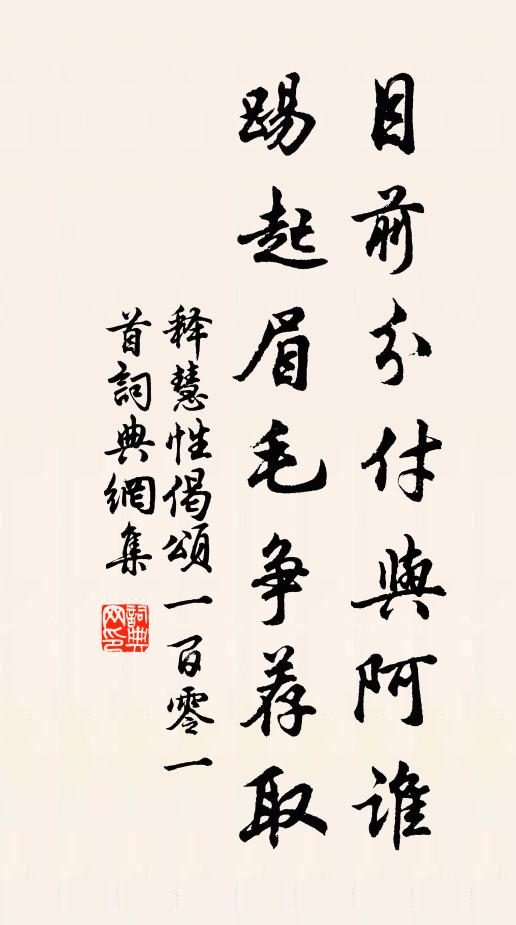 目前分付與阿誰
踢起眉毛争荐取
释慧性偈頌一百零一
首詞典網集
詞典网印